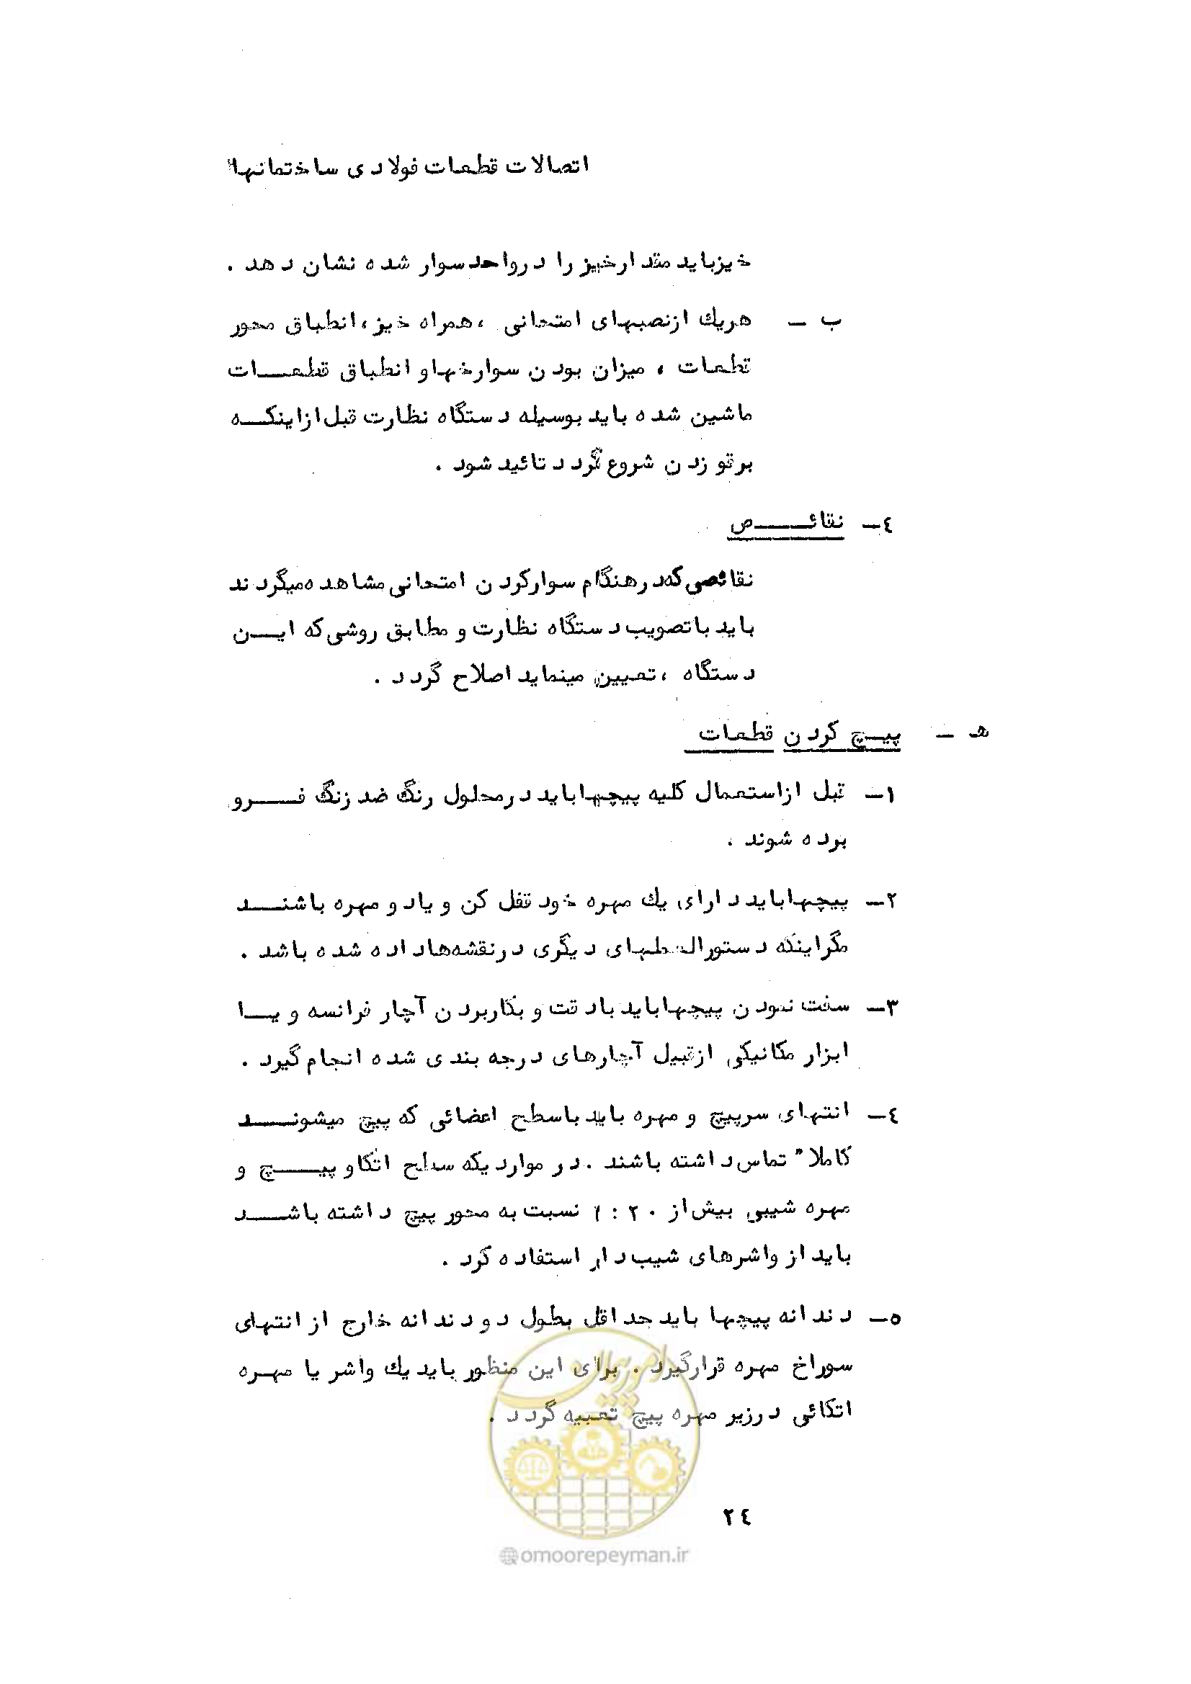 اتصالات قطعات فولادی ساختمانها
خیزباید مقدارخیز را درواحدسوار شده نشان دهد .
ب ــ هریك ازنصبهای امتحانی ، همراه خیز ، انطباق محور
قطعات ، میزان بودن سوارخهاو انطباق قطعـــات
ماشین شده باید بوسیله دستگاه نظارت قبل ازاینکــه
برقو زدن شروع گردد تائید شود .
٤ــ نقائـــــص
نقائصی که در هنگام سوارکردن امتحانی مشاهده میگردند
باید باتصویب دستگاه نظارت و مطابق روشی که ایـــن
دستگاه ، تعیین مینماید اصلاح گردد .
هـ ــ پیــچ کردن قطعات
۱ــ قبل ازاستعمال کلیه پیچهاباید درمحلول رنگ ضد زنگ فـــرو
برده شوند .
۲ــ پیچهاباید دارای یك مهره خود قفل کن و یادو مهره باشنـــد
مگراینکه دستورالعملهای دیگری درنقشه‌هاداده شده باشد .
۳ــ سفت نمودن پیچهاباید بادقت و بکاربردن آچار فرانسه و یـــا
ابزار مکانیکی ازقبیل آچارهای درجه بندی شده انجام گیرد .
٤ــ انتهای سرپیچ و مهره باید باسطح اعضائی که پیچ میشونـــد
کاملا" تماس داشته باشند . در مواردیکه سطح اتکاو پیـــــچ و
مهره شیبی بیش از ۲۰ : ۱ نسبت به محور پیچ داشته باشـــد
باید از واشرهای شیب دار استفاده کرد .
٥ــ دندانه پیچها باید حداقل بطول دودندانه خارج از انتهای
سوراخ مهره قرارگیرد . برای این منظور باید یك واشر یا مهــره
اتکائی درزیر مهره پیچ تعبیه گردد .
امور پیمان
۲٤
@omoorepeyman.ir